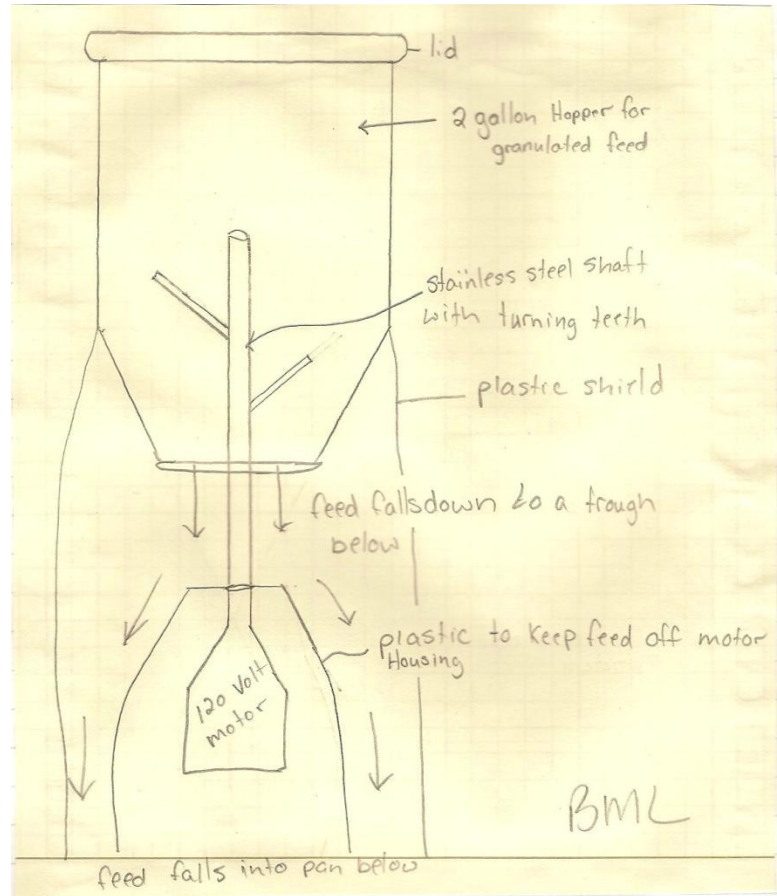 lid
2 gallon Hopper for
granulated feed
stainless steel shaft
with turning teeth
plastic shield
feed falls down to a trough
below
plastic to keep feed off motor
Housing
120 Volt
motor
BML
feed falls into pan below